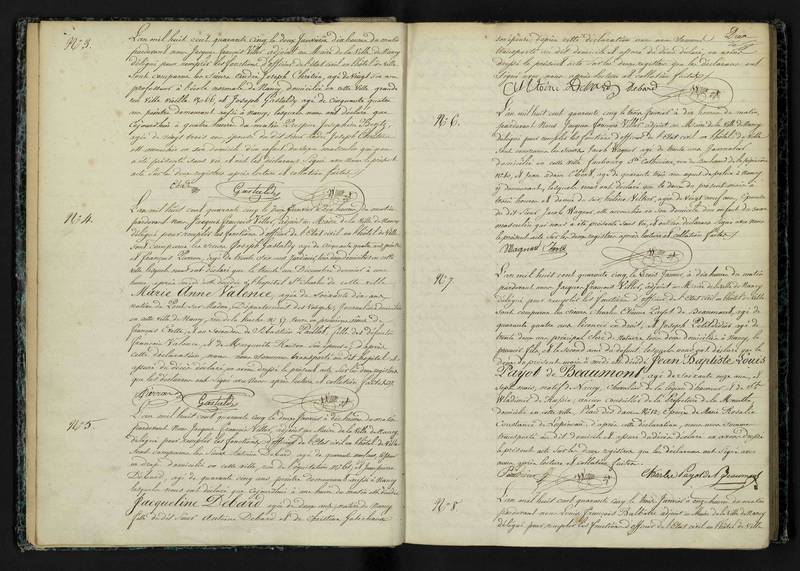 N° 3.
L'an mil huit cent quarante cinq le deux Janvier à dix heures du matin
pardevant nous Jacques François Villers, adjoint au Maire de la Ville de Nancy
délégué pour remplir les fonctions d'officier de l'état civil en l'hôtel de Ville
sont comparus les Sieurs Joseph Chrétien, agé de vingt
professeur à l'école normale de Nancy domicilié en cette Ville grande
rue Ville Vieille N° 66, et Joseph Gastaldy agé de cinquante quatre
ans peintre demeurant aussi à Nancy, lesquels nous ont déclaré que
à quatre heures du matin Joséphine
agée de vingt trois ans épouse du dit Sieur Joseph Chrétien
est accouchée en son domicile d'un enfant du sexe masculin qui
a été présenté sans vie, et ont les déclarans signé avec nous le présent
acte sur les deux registres après lecture et collation faites.
Gastaldy
N° 4.
L'an mil huit cent quarante cinq le deux Janvier à dix heures du matin
pardevant nous Jacques François Villers, adjoint au Maire de la Ville de Nancy
délégué pour remplir les fonctions d'officier de l'état civil en l'hôtel de Ville
sont comparus les Sieurs Joseph Gastaldy agé de cinquante quatre ans peintre
et François Pierron, agé de trente six ans domiciliés en cette
ville lesquels nous ont déclaré que le trente un Décembre dernier à une
heure après midi est décédée à l'hospital St Charles de cette ville
Marie Anne Valence, agée de soixante dix ans
native de Pont sur Madon, Département des Vosges, Journalière domiciliée
en cette ville de Nancy, rue de la hache N° 67, Veuve en premières noces de
François Crotte, et en secondes de Sébastien Paillet, fille des défunts
François Valence et de Marguerite son épouse, d'après
cette déclaration nous nous sommes transportés au dit hospital et
assuré du décès déclaré en avons dressé le présent acte sur les deux registres
que les déclarans ont signé avec nous après lecture et collation faites.
Pierron Gastaldy
N° 5.
L'an mil huit cent quarante cinq le deux Janvier à dix heures du matin
pardevant Nous Jacques François Villers, adjoint au Maire de la Ville de Nancy
délégué pour remplir les fonctions d'officier de l'état civil en l'hôtel de Ville
sont comparus les Sieurs Antoine Debard, agé de quarante
en drap domicilié en cette ville, rue de l'équitation N° 26, et
Debard, agé de quarante cinq ans peintre demeurant aussi à Nancy
lesquels nous ont déclaré que aujourd'hui à une heure du matin est décédée
Jacqueline Debard agée de deux ans, native de Nancy
fille du dit Sieur Antoine Debard et de Christine
son épouse, d'après cette déclaration nous nous sommes
transportés au dit domicile et assuré du décès déclaré, en avons
dressé le présent acte sur les deux registres que les déclarans ont
signé avec nous après lecture et collation faites.
Antoine Debard Debard
N° 6.
L'an mil huit cent quarante cinq le trois Janvier à dix heures du matin
pardevant Nous Jacques François Villers, adjoint au Maire de la Ville de Nancy
délégué pour remplir les fonctions d'officier de l'état civil en l'hôtel de Ville
sont comparus les Sieurs Jacob Wagner agé de trente ans Journalier
domicilié en cette ville faubourg Ste Catherine, rue du boulevard de la pépinière
N° 10, et Jean Adam agé de quarante trois ans agent de police à Nancy
y demeurant, lesquels nous ont déclaré que le deux du présent mois à
trois heures et demie du soir agée de vingt neuf ans, Epouse
du dit Sieur Jacob Wagner est accouchée en son domicile d'un enfant du sexe
masculin qui nous a été présenté sans vie, et ont les déclarans signé avec nous
le présent acte sur les deux registres après lecture et collation faites.
Wagner
N° 7.
L'an mil huit cent quarante cinq le trois Janvier, à dix heures du matin
pardevant nous Jacques François Villers, adjoint au Maire de la Ville de Nancy
délégué pour remplir les fonctions d'officier de l'état civil en l'hôtel de Ville
sont comparus les Sieurs Charles Payot de Beaumont, agé de
quarante quatre ans licencié en droit, et Joseph agé de
trente deux ans principal clerc de Notaire tous deux domiciliés à Nancy, le
premier fils, et le second ami du défunt lesquels nous ont déclaré que le
deux du présent mois à midi est décédé Jean Baptiste Louis
Payot de Beaumont agé de soixante onze ans et
sept mois, natif de Nancy, Chevalier de la légion d'honneur et de St
Wladimir de Russie, ancien conseiller de la Préfecture de la Meurthe,
domicilié en cette ville, Place des dames N° 12, Epoux de Marie Rosalie
Constance de d'après cette déclaration, nous nous sommes
transportés au dit domicile et assuré du décès déclaré en avons dressé
le présent acte sur les deux registres, que les déclarans ont signé avec
nous après lecture et collation faites.
Charles Payot de Beaumont
N° 8
L'an mil huit cent quarante cinq le trois Janvier à onze heures du matin
pardevant nous Louis François adjoint au Maire de la Ville de Nancy
délégué pour remplir les fonctions d'officier de l'état civil en l'hôtel de Ville